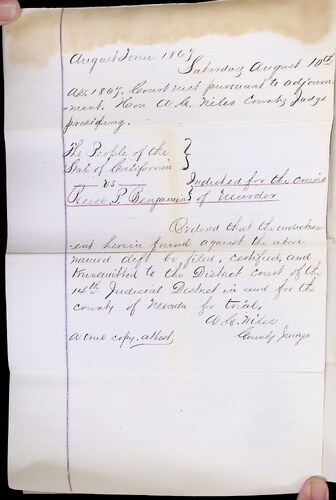 August Term 1867
Saturday August 10th
AD. 1867. Court met pursuant to adjourn-
ment. Hon A. C. Niles County Judge
presiding.
The People of the
State of California
vs
Reese P. Benjamin
Indicted for the crime
of Murder
Ordered that the indictm-
ent herein found against the above
named deft be filed, certified, and
transmitted to the District Court of the
14th Judicial District in and for the
county of Nevada for trial,
A. C. Niles
County Judge
A true copy, attest